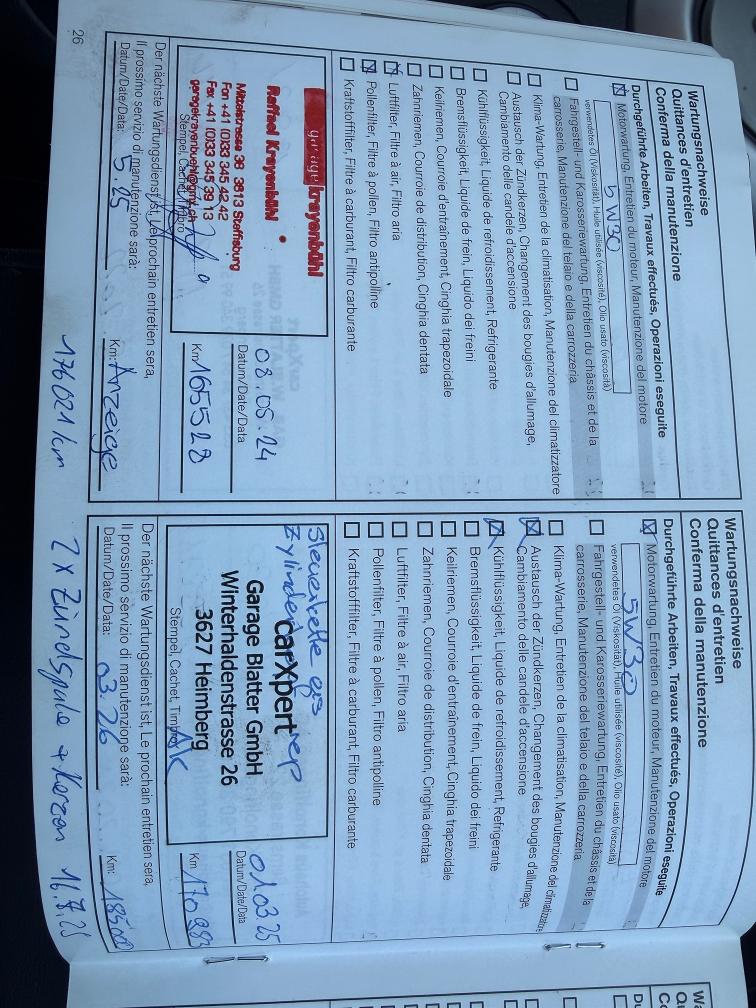 Wartungsnachweise
Quittances d'entretien
Conferma della manutenzione
Durchgeführte Arbeiten, Travaux effectués, Operazioni eseguite
Motorwartung, Entretien du moteur, Manutenzione del motore
5W30
verwendetes Öl (Viskosität), Huile utilisée (viscosité), Olio usato (viscosità)
Fahrgestell- und Karosseriewartung, Entretien du châssis et de la
carrosserie, Manutenzione del telaio e della carrozzeria
Klima-Wartung, Entretien de la climatisation, Manutenzione del climatizzatore
Austausch der Zündkerzen, Changement des bougies d'allumage,
Cambiamento delle candele d'accensione
Kühlflüssigkeit, Liquide de refroidissement, Refrigerante
Bremsflüssigkeit, Liquide de frein, Liquido dei freini
Keilriemen, Courroie d'entraînement, Cinghia trapezoidale
Zahnriemen, Courroie de distribution, Cinghia dentata
Luftfilter, Filtre à air, Filtro aria
Pollenfilter, Filtre à pollen, Filtro antipolline
Kraftstofffilter, Filtre à carburant, Filtro carburante
garage krayenbühl
Raffael Krayenbühl
Mittelstrasse 38 3613 Steffisburg
Fon +41 (0)33 345 42 42
Fax +41 (0)33 345 29 13
garagekrayenbuehl@gmx.ch
Stempel, Cachet, Timbro
08.05.24
Datum/Date/Data
Km 165528
Der nächste Wartungsdienst ist, Le prochain entretien sera,
Il prossimo servizio di manutenzione sarà:
Datum/Date/Data: 5.25
Km: Anzeige
26
Wartungsnachweise
Quittances d'entretien
Conferma della manutenzione
Durchgeführte Arbeiten, Travaux effectués, Operazioni eseguite
Motorwartung, Entretien du moteur, Manutenzione del motore
5W30
verwendetes Öl (Viskosität), Huile utilisée (viscosité), Olio usato (viscosità)
Fahrgestell- und Karosseriewartung, Entretien du châssis et de la
carrosserie, Manutenzione del telaio e della carrozzeria
Klima-Wartung, Entretien de la climatisation, Manutenzione del climatizzatore
Austausch der Zündkerzen, Changement des bougies d'allumage,
Cambiamento delle candele d'accensione
Kühlflüssigkeit, Liquide de refroidissement, Refrigerante
Bremsflüssigkeit, Liquide de frein, Liquido dei freini
Keilriemen, Courroie d'entraînement, Cinghia trapezoidale
Zahnriemen, Courroie de distribution, Cinghia dentata
Luftfilter, Filtre à air, Filtro aria
Pollenfilter, Filtre à pollen, Filtro antipolline
Kraftstofffilter, Filtre à carburant, Filtro carburante
Steuerkette
carXpert
Garage Blatter GmbH
Winterhaldenstrasse 26
3627 Heimberg
Stempel, Cachet, Timbro
01.03.25
Datum/Date/Data
Km
Der nächste Wartungsdienst ist, Le prochain entretien sera,
Il prossimo servizio di manutenzione sarà:
Datum/Date/Data: 03.26
Km: 185000
176021 km 2 x Zündspule + Kerzen 16.7.25